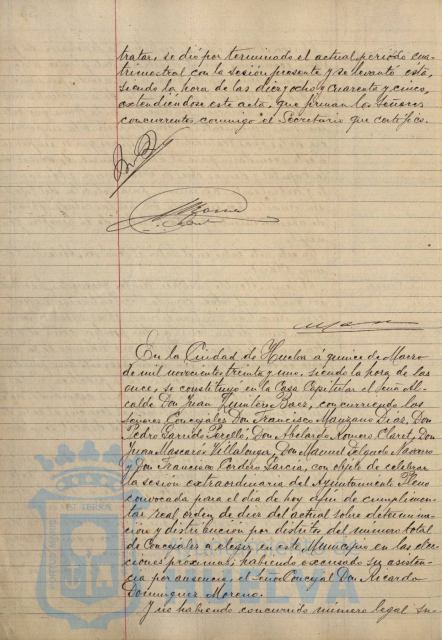 tratar, se dió por terminado el actual periodo cua-
trimestral con la sesión presente y se levantó esta,
siendo la hora de las diez y ocho y cuarenta y cinco,
extendiéndose esta acta, que firman los Señores
concurrentes conmigo el Secretario que certifico.
En la Ciudad de Huelva á quince de Marzo
de mil novecientos treinta y uno, siendo la hora de las
once, se constituyó en la Casa Capitular el Señor Al-
calde Don Juan Quintero Baez, con curriendo los
Señores Concejales Don Francisco Manzano Diaz, Don
Pedro Garrido Perelló, Don Abelardo Romero Claret, Don
Juan Mascarós Villalonga, Don Manuel Delgado Navarro
y Don Francisco Cordero Garcia, con objeto de celebrar
la sesión extraordinaria del Ayuntamiento Pleno
convocada para el dia de hoy á fin de cumplimen-
tar real orden de diez del actual sobre determina-
ción y distribución por distritos del número total
de Concejales a elegir en este Municipio en las elec-
ciones proximas; habiendo excusado su asisten-
cia por ausencia, el Señor Concejal Don Ricardo
Dominguez Moreno.
Y no habiendo concurrido número legal su-
HUELVA